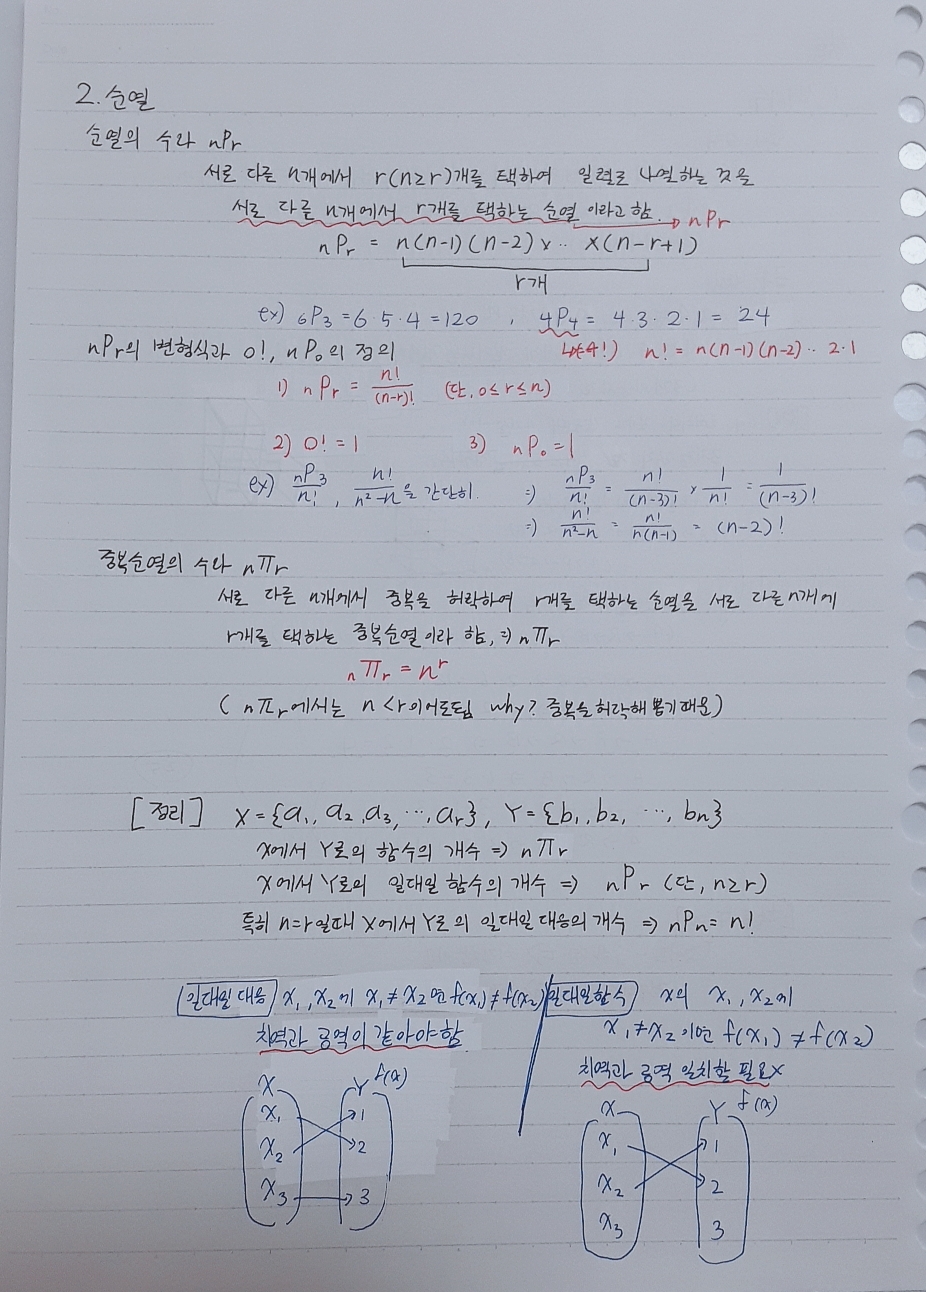 2. 순열
순열의 수와 nPr
서로 다른 n개에서 r(n≥r)개를 택하여 일렬로 나열하는 것을
서로 다른 n개에서 r개를 택하는 순열 이라고 함. → nPr
nPr = n(n-1)(n-2)×‥ ×(n-r+1)
r개
ex) 6P3 = 6·5·4 = 120 , 4P4 = 4·3·2·1 = 24
nPr의 변형식과 0!, nP0의 정의
↳(4!) n! = n(n-1)(n-2)‥ 2·1
1) nPr = n!/(n-r)! (단, 0≤r≤n)
2) 0! = 1 3) nP0 = 1
ex) nP3/n! , n!/n²-n 을 간단히. ⇒ nP3/n! = n!/(n-3)! × 1/n! = 1/(n-3)!
⇒ n!/n²-n = n!/n(n-1) = (n-2)!
중복순열의 수와 nΠr
서로 다른 n개에서 중복을 허락하여 r개를 택하는 순열을 서로 다른 n개에
r개를 택하는 중복순열 이라 함, ⇒ nΠr
nΠr = n^r
( nΠr에서는 n<r이어도됨 why? 중복을 허락해 뽑기때문)
[정리] X={a1, a2, a3, ⋯, ar}, Y={b1, b2, ⋯, bn}
X에서 Y로의 함수의 개수 ⇒ nΠr
X에서 Y로의 일대일 함수의 개수 ⇒ nPr (단, n≥r)
특히 n=r일때 X에서 Y로의 일대일 대응의 개수 ⇒ nPn = n!
일대일 대응 x1, x2에 x1≠x2면 f(x1)≠f(x2)
치역과 공역이 같아야 함.
X Y f(x)
x1 1
x2 2
x3 3
일대일함수 X의 x1, x2에
x1≠x2 이면 f(x1)≠f(x2)
치역과 공역 일치할 필요X
X Y f(x)
x1 1
x2 2
x3 3